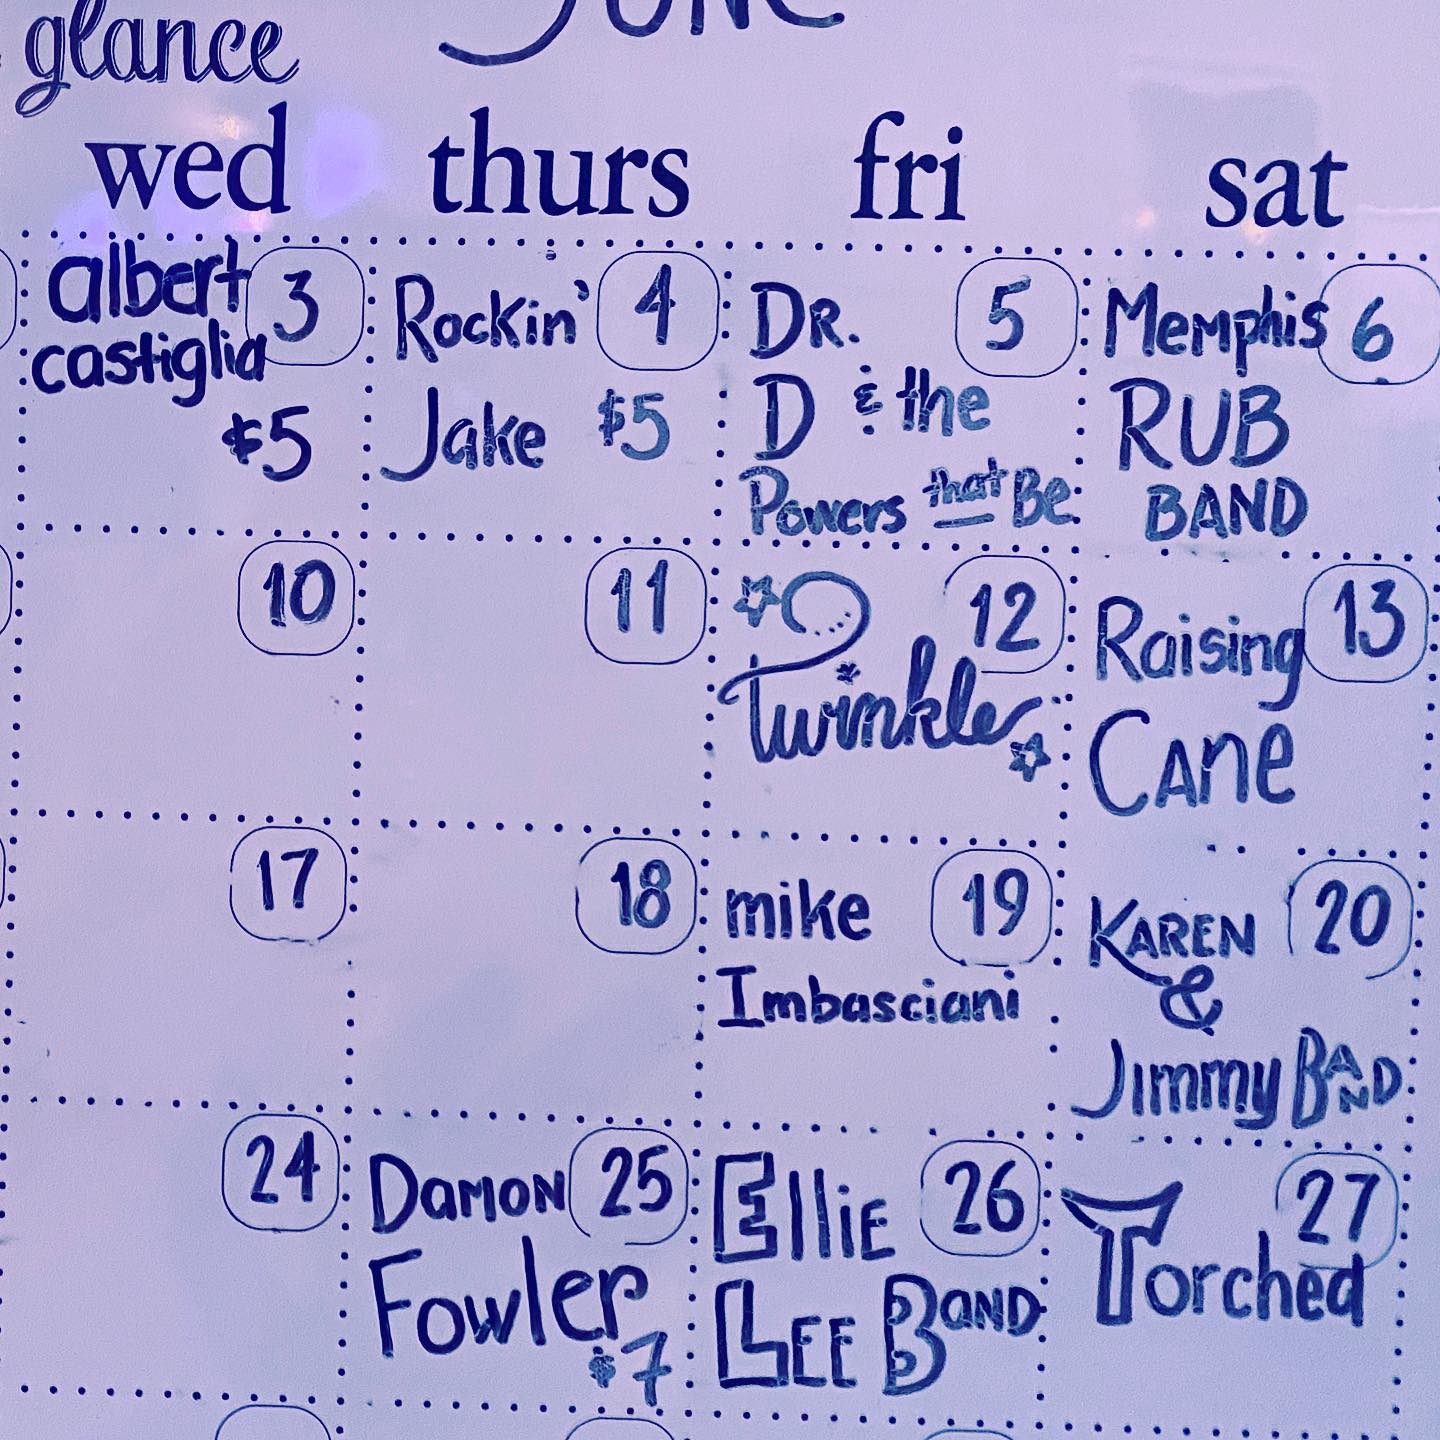 June
glance
wed thurs fri sat
albert castiglia 3 $5
Rockin' Jake 4 $5
Dr. D & the Powers that Be 5
Memphis RUB BAND 6
10
11
Twinkle 12
Raising Cane 13
17
18
mike Imbasciani 19
KAREN & Jimmy BAND 20
24
Damon Fowler 25 $7
Ellie LEE BAND 26
Torched 27